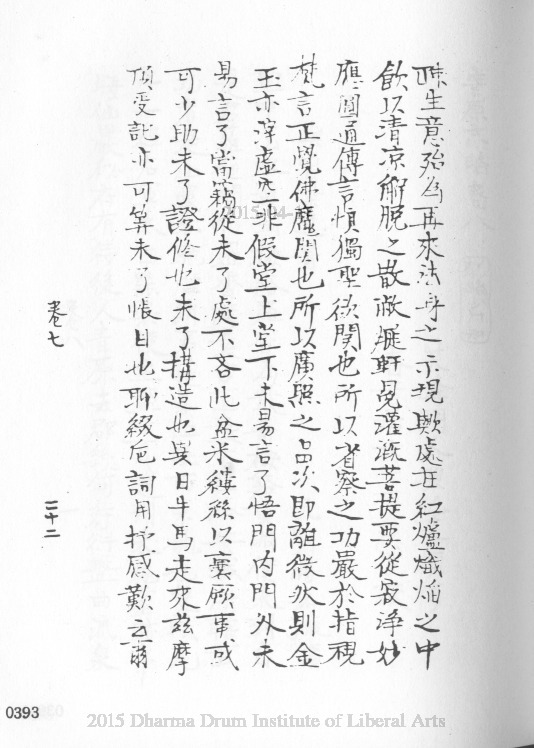 眛生意殆為再來法身之示現歟處在紅爐熾焰之中
飲以清凉解脫之散敝屣軒冕灌溉菩提要從寂淨妙
應圓通傳言慎獨聖欲関也所以省察之功嚴於指視
梵言正覺佛魔関也所以廣照之品次即離微必則金
玉亦滓虛空非假堂上堂下未易言了悟門内門外未
易言了當竊從未了處不吝此盆米縷絲以棄願事或
可少助未了證修也未了構造也異日牛馬走來兹摩
頂受記亦可筭未了帳目也聊綴卮詞用抒感歎云爾
卷七
二十二
0393
2015 Dharma Drum Institute of Liberal Arts